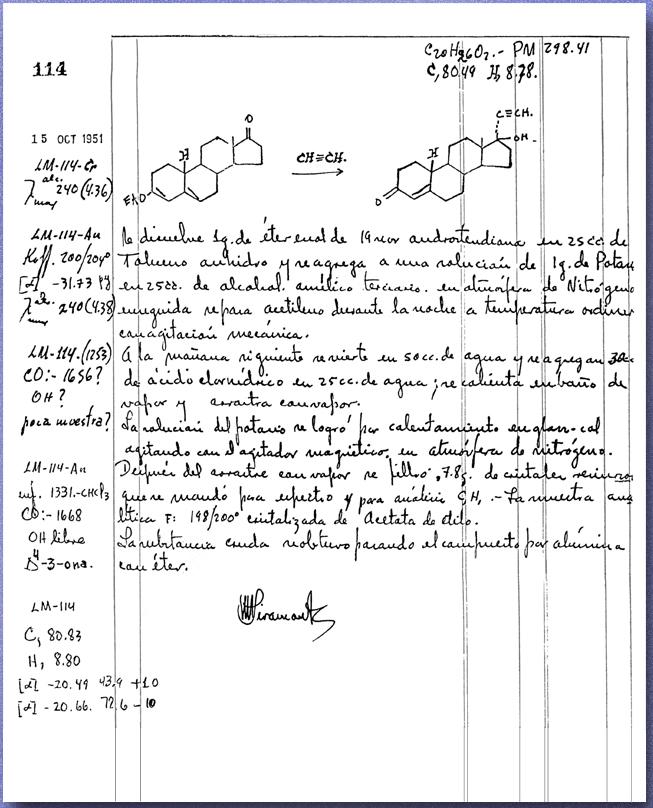 C20H26O2.- PM 298.41
114
C, 80.49 H, 8.78.
15 OCT 1951
LM-114-Cr
λ alc. max 240 (4.36)
H
O
EtO
CH≡CH.
H
C≡CH.
OH.
O
LM-114-An
Koff. 200/204°
[α] -31.73
λ alc. max 240 (4.38)
Se disuelve 1g. de éter enol de 19 nor androstendiona en 25 cc. de
Tolueno anhidro y se agrega a una solución de 1g. de Potasio
en 25cc. de alcohol amílico terciario en atmósfera de Nitrógeno
enseguida se pasa acetileno durante la noche a temperatura
con agitación mecánica.
LM-114.(1253)
CO:- 1656?
OH?
poca muestra?
A la mañana siguiente se vierte en 50cc. de agua y se agregan 30cc
de ácido clorhídrico en 25cc. de agua; se calienta en baño de
vapor y arrastra con vapor.
La solución del potasio se logró por calentamiento en glas-col
agitando con el agitador magnético en atmósfera de nitrógeno.
LM-114-An
inf. 1331.-CHCl3
CO:- 1668
OH libre
Δ4-3-ona.
Después del arrastre con vapor se filtró .78g. de cristales
que se mandó para espectro y para análisis CH,.- La muestra ana
lítica F: 198/200° cristalizada de Acetato de etilo.
La substancia cruda se obtuvo pasando el compuesto por alúmina
con éter.
LM-114
C, 80.83
H, 8.80
[α] -20.49 43.9 +10
[α] -20.66. 72.6 -10